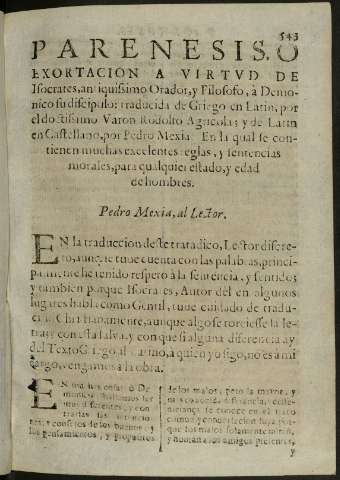 543
PARENESIS. O
EXORTACION A VIRTVD DE
Isocrates, antiquissimo Orador, y Filosofo, à Demo-
nico su discipulo: traducida de Griego en Latin, por
el doctissimo Varon Rodolfo Agricola: y de Latin
en Castellano, por Pedro Mexia. En la qual se con-
tienen muchas excelentes reglas, y sentencias
morales, para qualquier estado, y edad
de hombres.
Pedro Mexia, al Lector.
EN la traduccion deste tratadico, Lector discre-
to, aunque tuue cuenta con las palabras, princi-
palmente he tenido respeto à la sentencia, y sentido;
y tambien porque Isocrates, Autor del en algunos
lugares habla como Gentil, tuue cuidado de tradu-
cir Christianamente, aunque algo se torciesse la le-
tra: y con esta salva, y con que si alguna diferencia ay
del Texto Griego, al Latino, a quien yo sigo, no es a mi
cargo, vengamos a la obra.
EN muchas cosas ò De-
monico hallamos ser
muy diferentes, y con-
trarias las
y consejos de los buenos, y
los pensamientos, y propositos
de los malos; pero la mayor, y
mas conocida diferencia, y
se conoce en el trato
comun y conuersacion suya, por-
que los malos solamente
y honran a los amigos presentes,
y